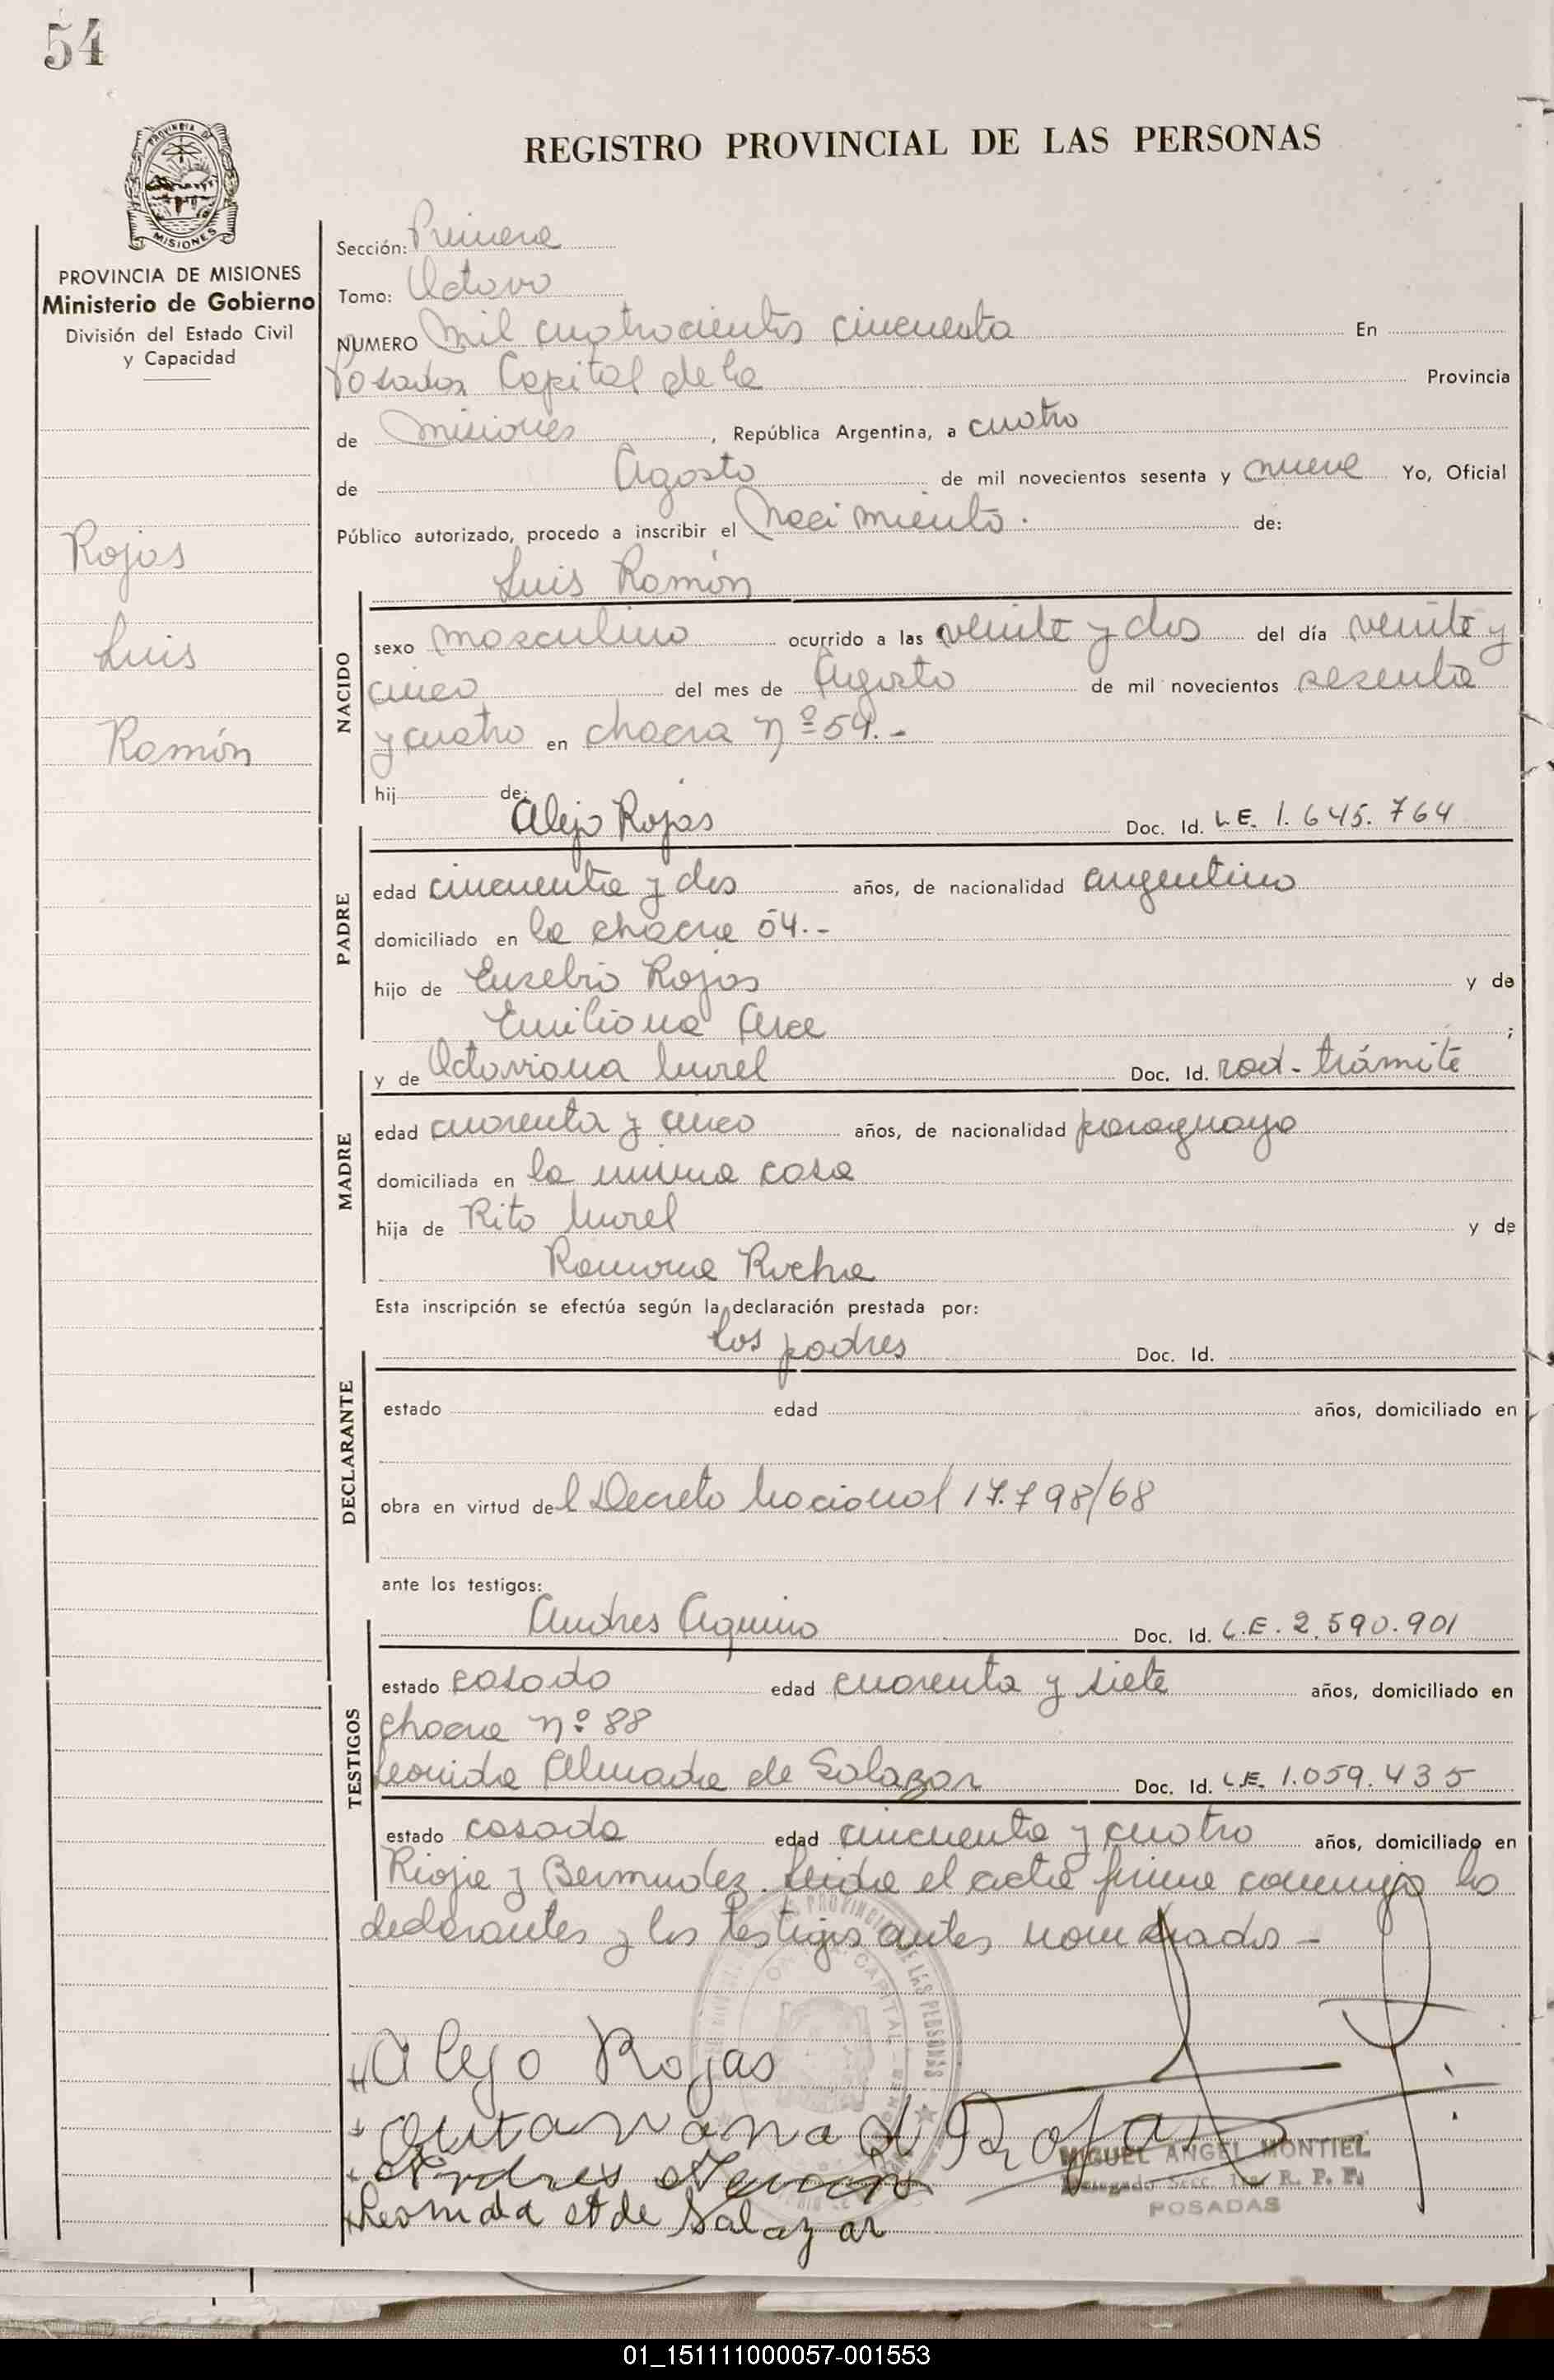 54
REGISTRO PROVINCIAL DE LAS PERSONAS
PROVINCIA DE MISIONES
Ministerio de Gobierno
División del Estado Civil
y Capacidad
Rojas
Luis
Ramón
Sección: Primera
Tomo: Octavo
NUMERO Mil cuatrocientos cincuenta En
Posadas Capital de la Provincia
de Misiones, República Argentina, a cuatro
de Agosto de mil novecientos sesenta y nueve Yo, Oficial
Público autorizado, procedo a inscribir el Nacimiento. de:
Luis Ramón
NACIDO
sexo masculino ocurrido a las veinte y dos del día veinte y
cinco del mes de Agosto de mil novecientos sesenta
y cuatro en chacra Nº 54.-
hij de:
Alejo Rojas Doc. Id. L.E. 1.645.764
PADRE
edad cincuenta y dos años, de nacionalidad argentino
domiciliado en la chacra 54.-
hijo de Eusebio Rojas y de
Emiliana Arce ;
y de Octaviana Morel Doc. Id. rad. trámite
MADRE
edad cuarenta y cinco años, de nacionalidad paraguaya
domiciliada en la misma casa
hija de Rito Morel y de
Ramona Rocha
Esta inscripción se efectúa según la declaración prestada por:
los padres Doc. Id.
DECLARANTE
estado edad años, domiciliado en
obra en virtud del Decreto Nacional 17.798/68
ante los testigos:
Andres Aquino Doc. Id. L.E. 2.590.901
TESTIGOS
estado casado edad cuarenta y siete años, domiciliado en
chacra Nº 88
Leonida Almada de Salazar Doc. Id. L.E. 1.059.435
estado casada edad cincuenta y cuatro años, domiciliado en
Rioja y Bermudez. Leida el acta firma conmigo los
declarantes y los testigos antes nombrados -
Alejo Rojas
Outavana d Rojas
Andres
Leonida A de Salazar
MIGUEL ANGEL MONTIEL
Delegado Secc. 1ra R. P. P.
POSADAS
01_151111000057-001553